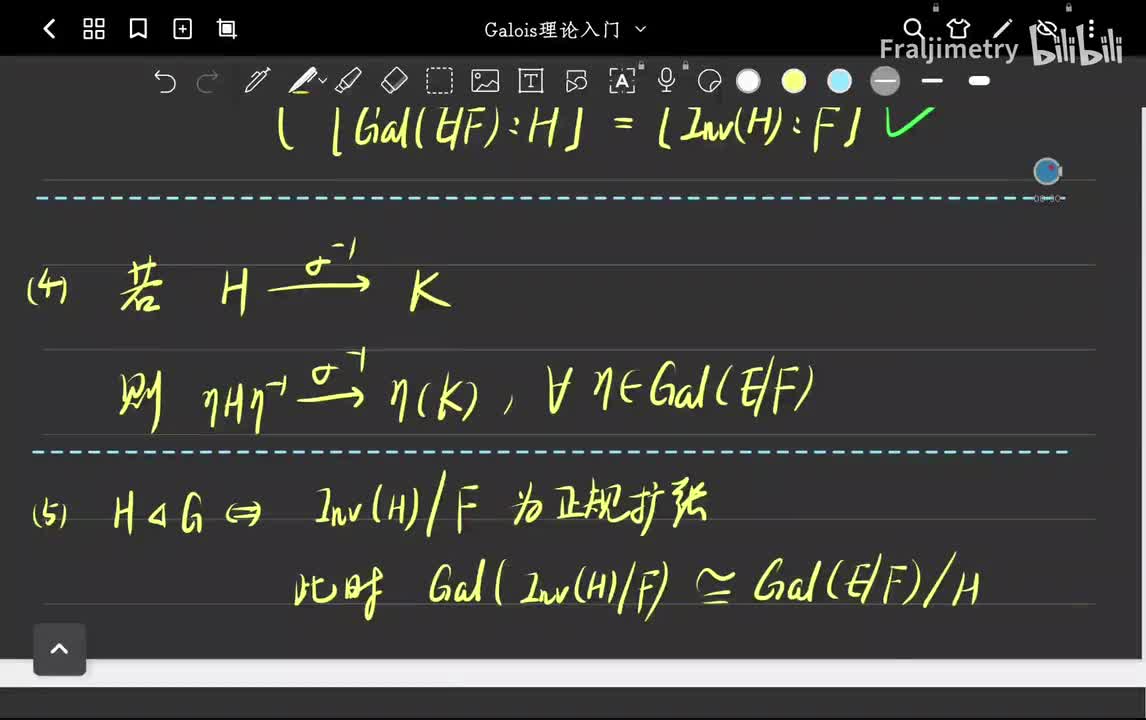 Galois理论入门
Fraljimetry bilibili
[Gal(E/F):H] = [Inv(H):F] ✓
08:30
(4) 若 H \xrightarrow{σ^{-1}} K
则 ηHη^{-1} \xrightarrow{σ^{-1}} η(K), ∀ η∈Gal(E/F)
(5) H ◁ G ⇔ Inv(H)/F 为正规扩张
此时 Gal(Inv(H)/F) ≅ Gal(E/F)/H